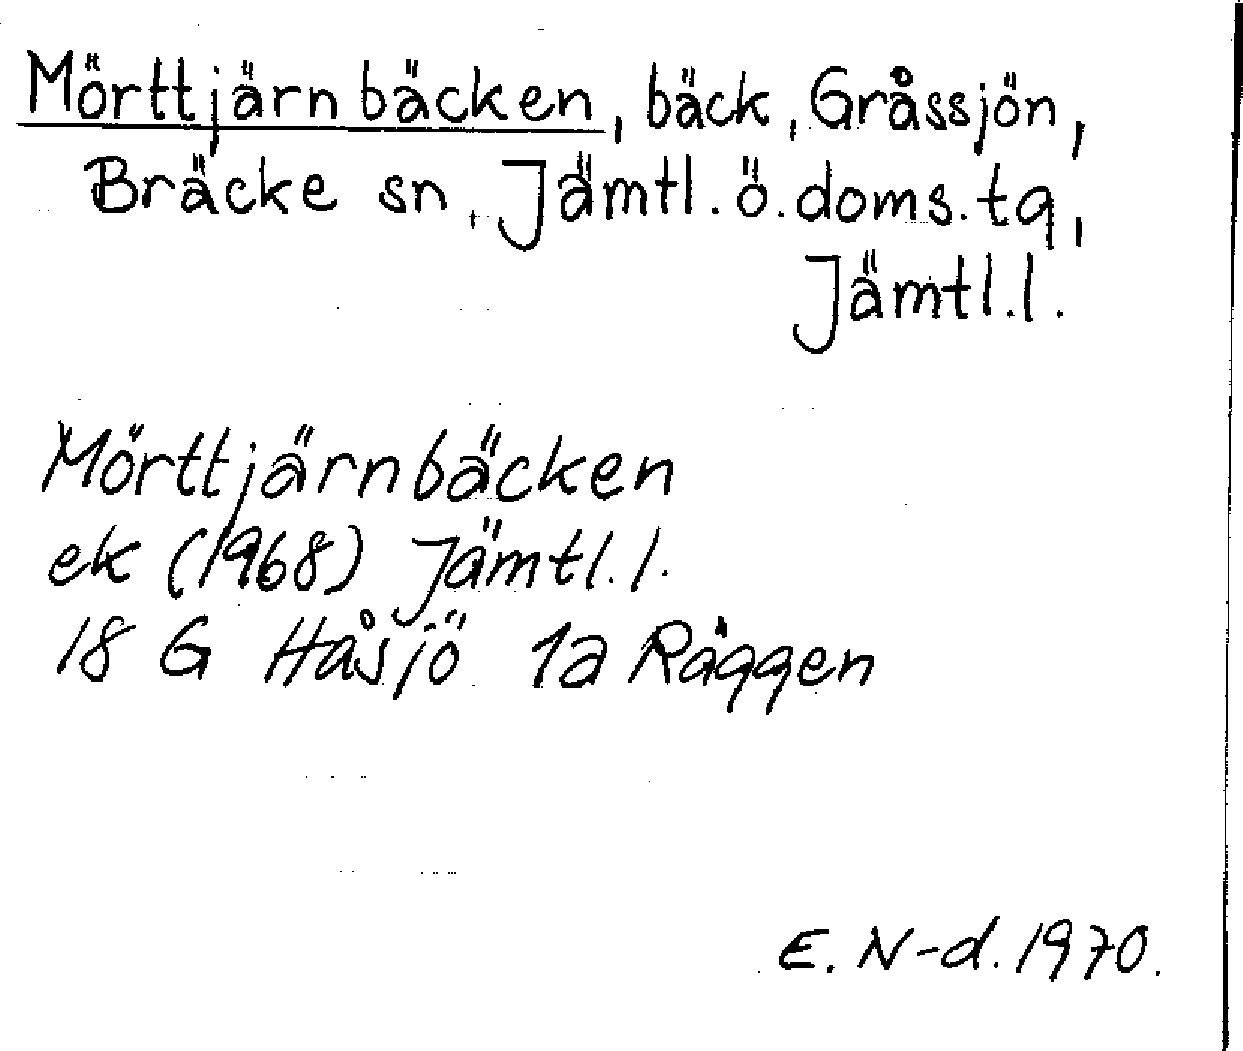 Mörttjärnbäcken, bäck, Gråssjön,
Bräcke sn, Jämtl. ö. doms. tg,
Jämtl. l.
Mörttjärnbäcken
ek (1968) Jämtl. l.
18 G Håsjö 1a Räggen
E. N-d. 1970.